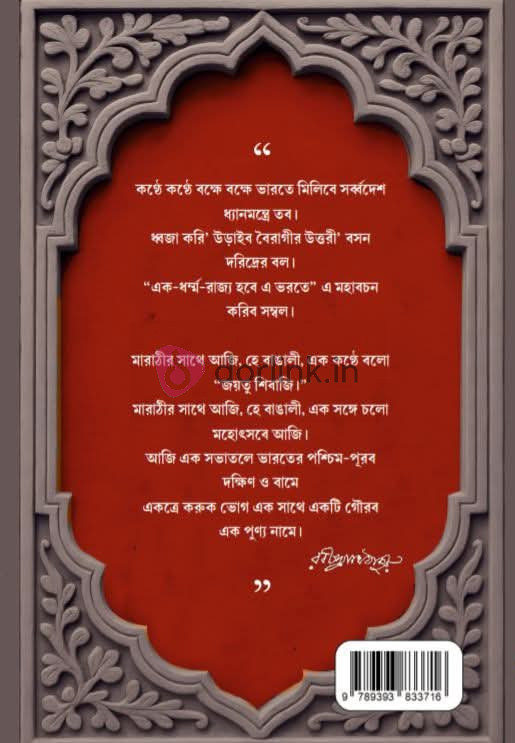 “
কণ্ঠে কণ্ঠে বক্ষে বক্ষে ভারতে মিলিবে সর্ব্বদেশ
ধ্যানমন্ত্রে তব।
ধ্বজা করি’ উড়াইব বৈরাগীর উত্তরী’ বসন
দরিদ্রের বল।
“এক-ধর্ম্ম-রাজ্য হবে এ ভরতে” এ মহাবচন
করিব সম্বল।
মারাঠীর সাথে আজি, হে বাঙালী, এক কণ্ঠে বলো
“জয়তু শিবাজি।”
মারাঠীর সাথে আজি, হে বাঙালী, এক সঙ্গে চলো
মহোৎসবে আজি।
আজি এক সভাতলে ভারতের পশ্চিম-পূরব
দক্ষিণ ও বামে
একত্রে করুক ভোগ এক সাথে একটি গৌরব
এক পুণ্য নামে।
রবীন্দ্রনাথ ঠাকুর
”
dorlink.in
9 789393 833716